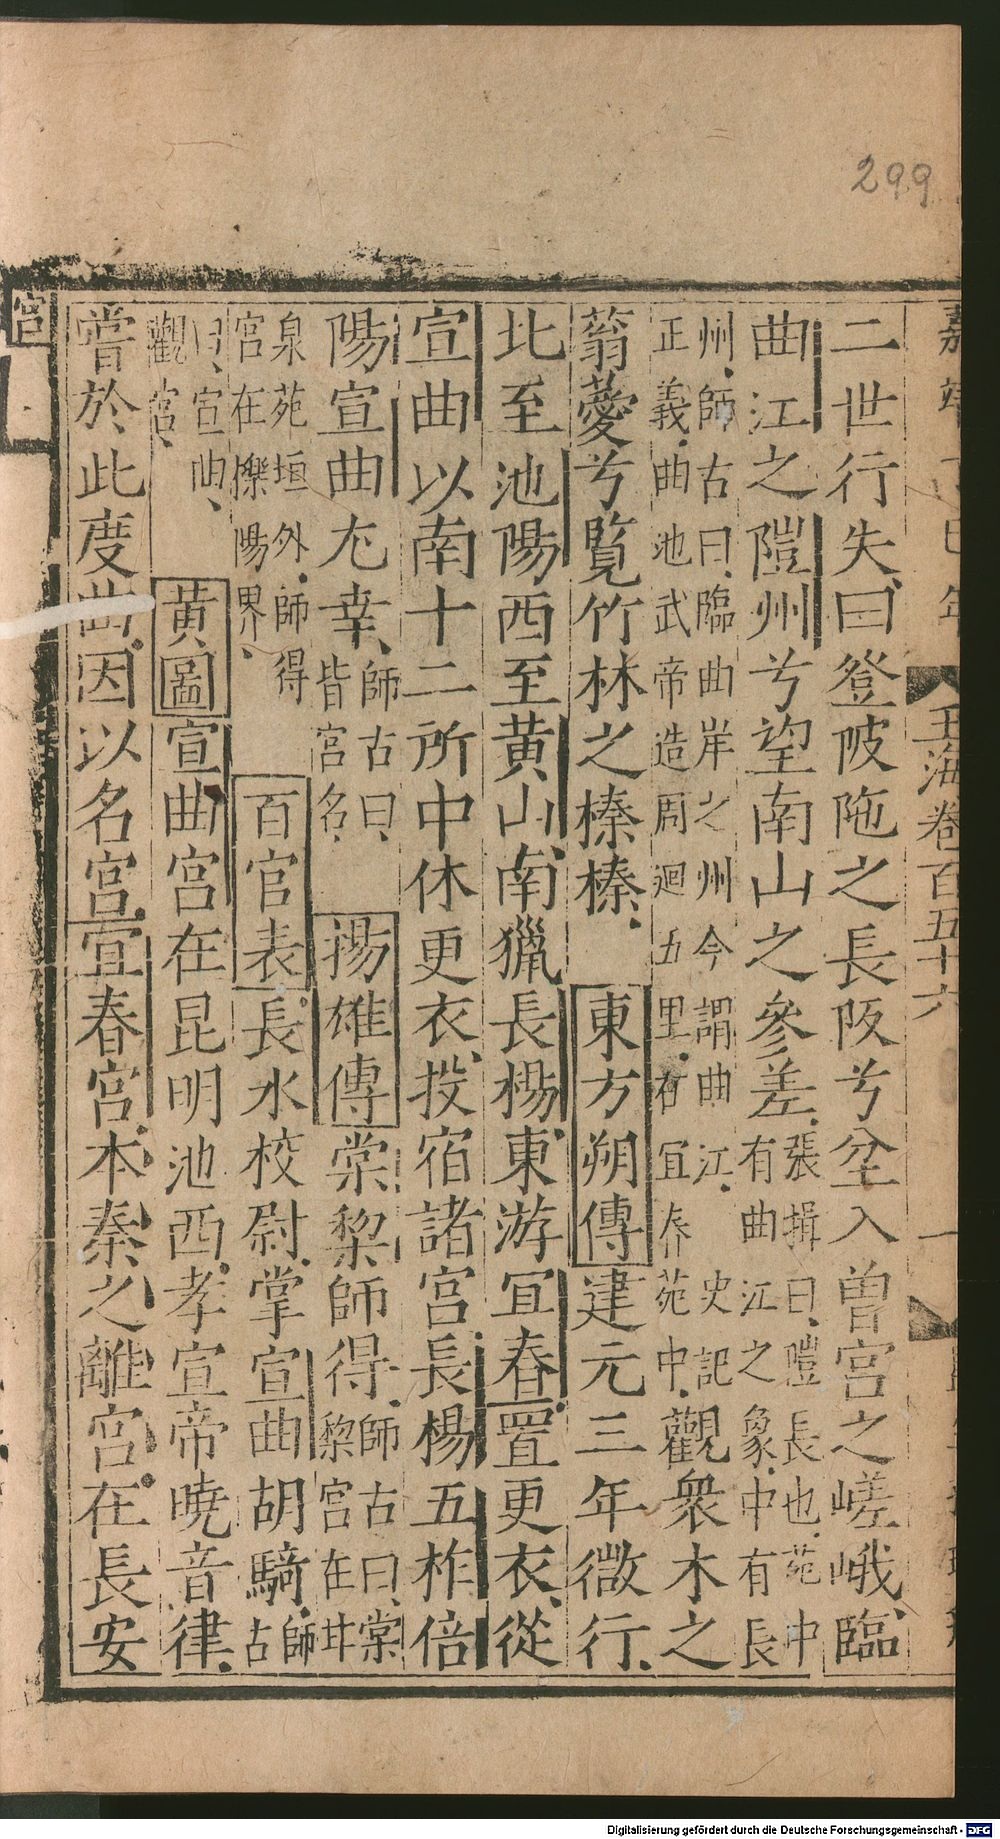 299
玉海卷百五十六
二世行失曰登陂陁之長阪兮坌入曽宮之嵯峨臨
曲江之隑州兮望南山之參差張揖曰隑長也苑中有曲江之象中有長
州師古曰臨曲岸之州今謂曲江史記正義曲池武帝造周迴五里在宜春苑中觀衆木之
蓊薆兮覽竹林之榛榛東方朔傳建元三年微行
北至池陽西至黄山南獵長楊東游宜春置更衣從
宣曲以南十二所中休更衣投宿諸宮長楊五柞倍
陽宣曲尤幸師古曰皆宮名揚雄傳棠棃師得師古曰棠棃宮在甘
泉苑垣外師得宮在櫟陽界百官表長水校尉掌宣曲胡騎師古
曰宣曲觀宮黄圖宣曲宮在昆明池西孝宣帝曉音律
嘗於此度曲因以名宮宜春宮本秦之離宮在長安
宮
Digitalisierung gefördert durch die Deutsche Forschungsgemeinschaft - DFG